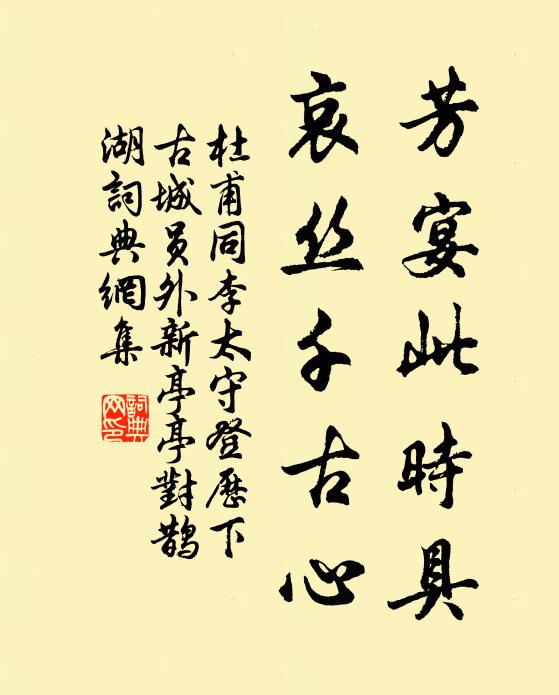 芳宴此時具
哀丝千古心
杜甫同李太守登歷下
古城员外新亭亭對鵲
湖詞典網集
詞典網印